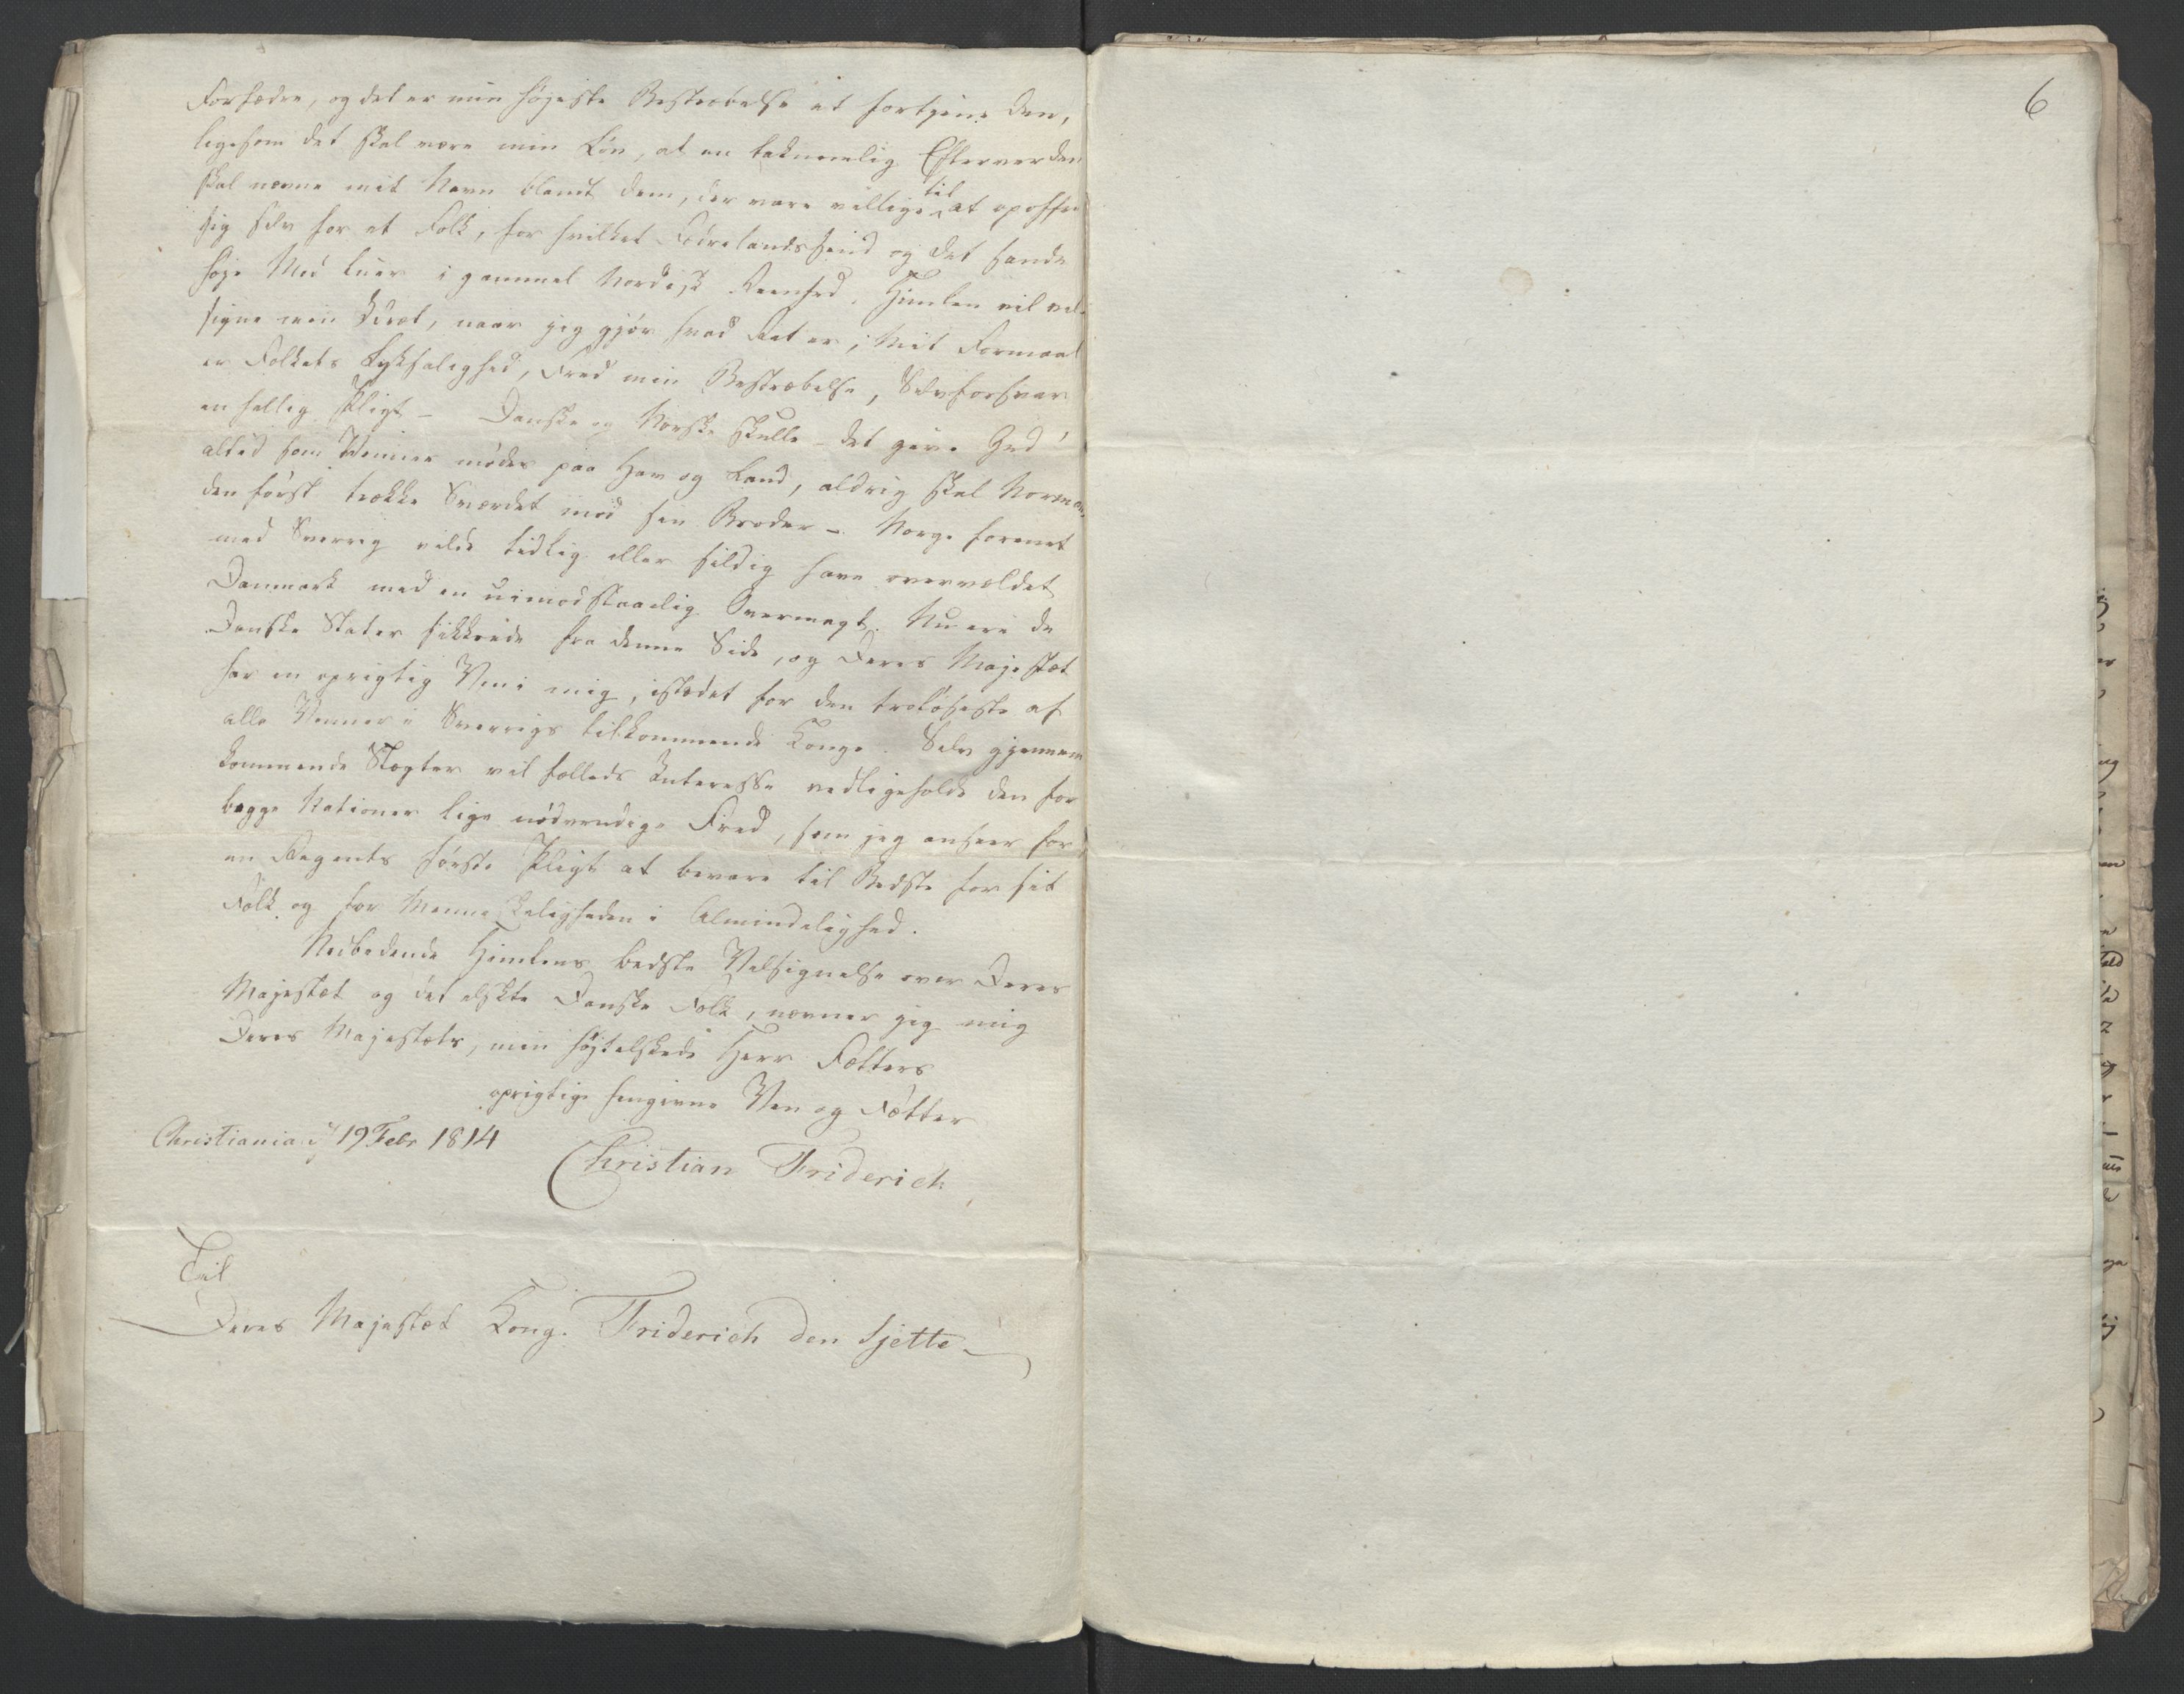 6
Forfædre, og det er min højeste Bestræbelse at fortjene den,
ligesom det skal være min Løn, at en taknemlig Efterverden
skal nævne mit Navn blandt dem, der vare villige til at opoffre
sig selv for et Folk, for hvilket Fædrelandssind og det sande
høje Mod luer i gammel Nordisk Reenhed. Himlen vil vel-
signe min Idræt, naar jeg gjør hvad Ret er; Mit Formaal
er Folkets Lyksalighed, Fred min Bestræbelse, Selvforsvar
en hellig Pligt – Danske og Norske skulle – det give Gud!
altid som Venner mødes paa Hav og Land, aldrig skal Norman-
den først trække Sværdet mod sin Broder –. Norge forenet
med Sverrig vilde tidlig eller sildig have overvældet
Danmark med en uimodstaaelig Overmagt. Nu ere de
Danske Stater sikkrede fra denne Side, og Deres Majestæt
har en oprigtig Ven i mig, istædet for den troløseste af
alle Venner i Sverrigs tilkommende Konge. Selv gjennem
kommende Slægter vil fælleds Interesse vedligeholde den for
begge Nationer lige nødvendige Fred, som jeg anseer for
en Regents første Pligt at bevare til Bedste for sit
Folk og for Menneskeligheden i Almindelighed.
Nedbedende Himlens bedste Velsignelse over Deres
Majestæt og det elskte Danske Folk, nævner jeg mig
Deres Majestæts, min højtelskede Herr Fætters
oprigtige hengivne Ven og Fætter
Christiania d. 19 Febr 1814
Christian Friderich
Til
Deres Majestæt Kong. Friderich den Sjette